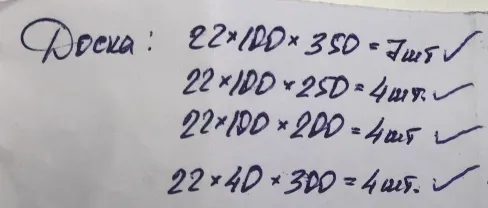 Доска: 22×100×350=7шт ✓
22×100×250=4шт. ✓
22×100×200=4шт ✓
22×40×300=4шт. ✓